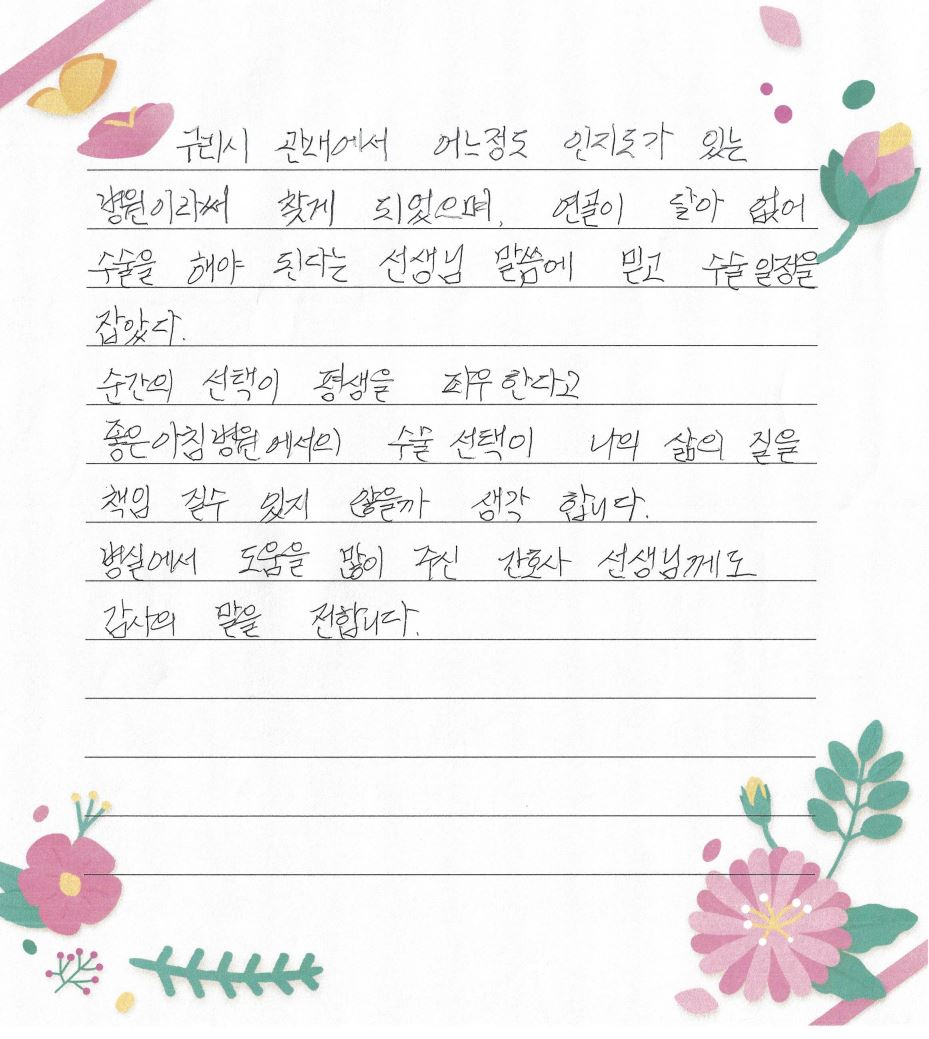 구리시 관내에서 어느정도 인지도가 있는
병원이라써 찾게 되었으며, 연골이 닳아 없어
수술을 해야 된다는 선생님 말씀에 믿고 수술일정을
잡았다.
순간의 선택이 평생을 좌우한다고
좋은아침병원에서의 수술 선택이 나의 삶의 질을
책임 질수 있지 않을까 생각 합니다.
병실에서 도움을 많이 주신 간호사 선생님께도
감사의 말을 전합니다.